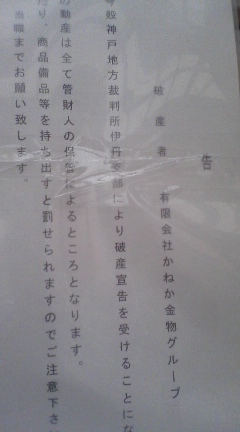 告
破産者　有限会社かねか金物グループ
今般神戸地方裁判所伊丹支部により破産宣告を受けることにな
の動産は全て管財人の保管によるところとなります。
り、商品備品等を持ち出すと罰せられますのでご注意下さ
当職までお願い致します。